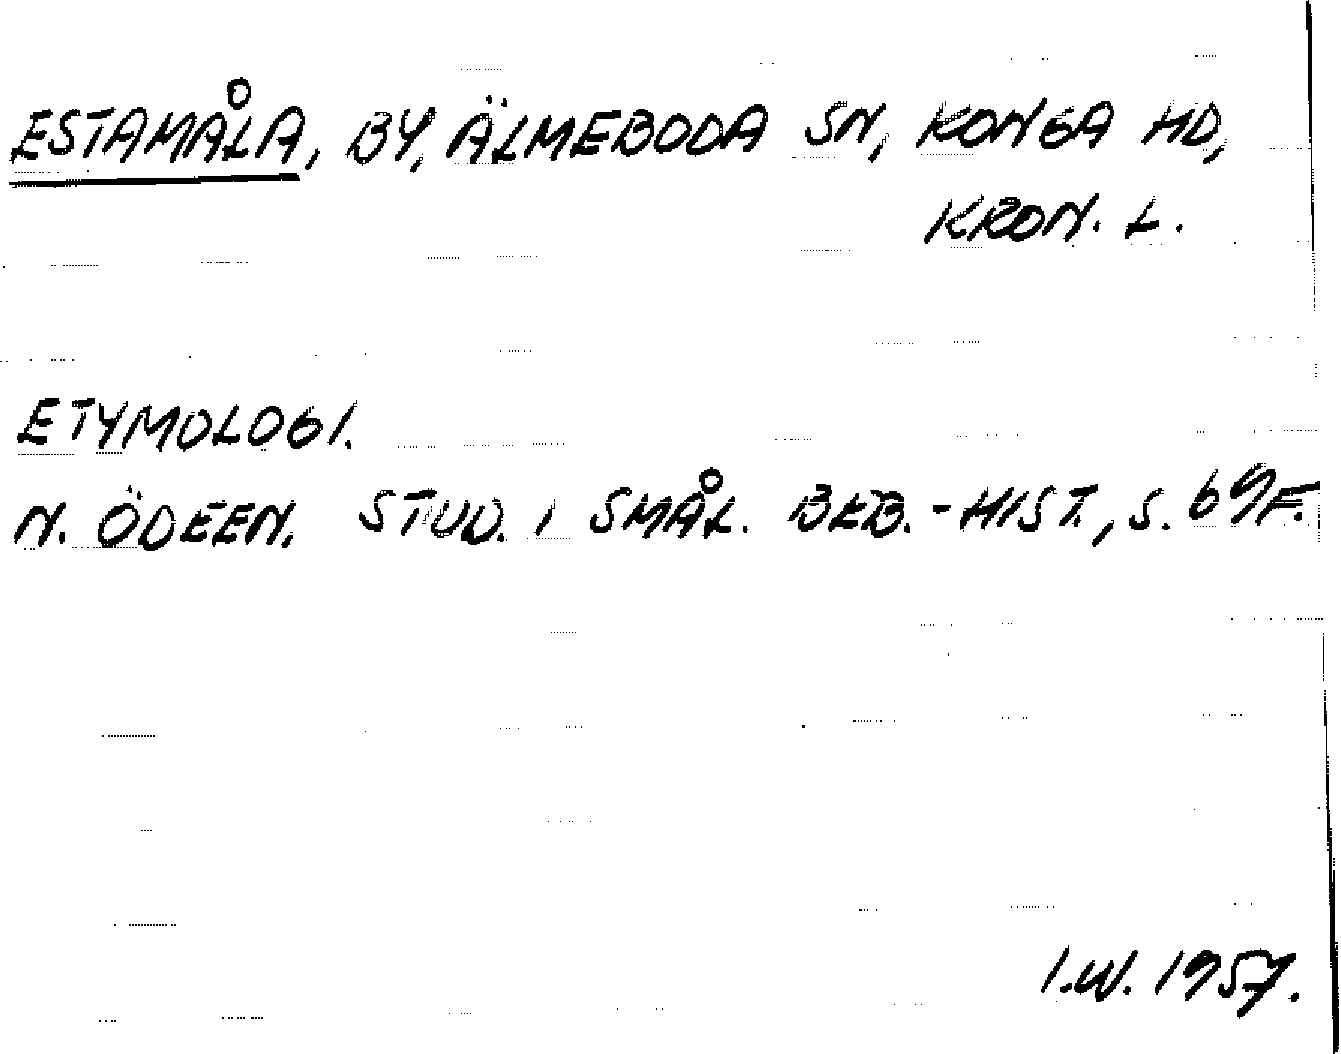 ESTAMÅLA, BY, ÄLMEBODA SN, KONGA HD,
KRON. L.
ETYMOLOGI.
N. ÖDEEN. STUD. I SMÅL. BEB.-HIST., S. 69F.
I.W. 1957.